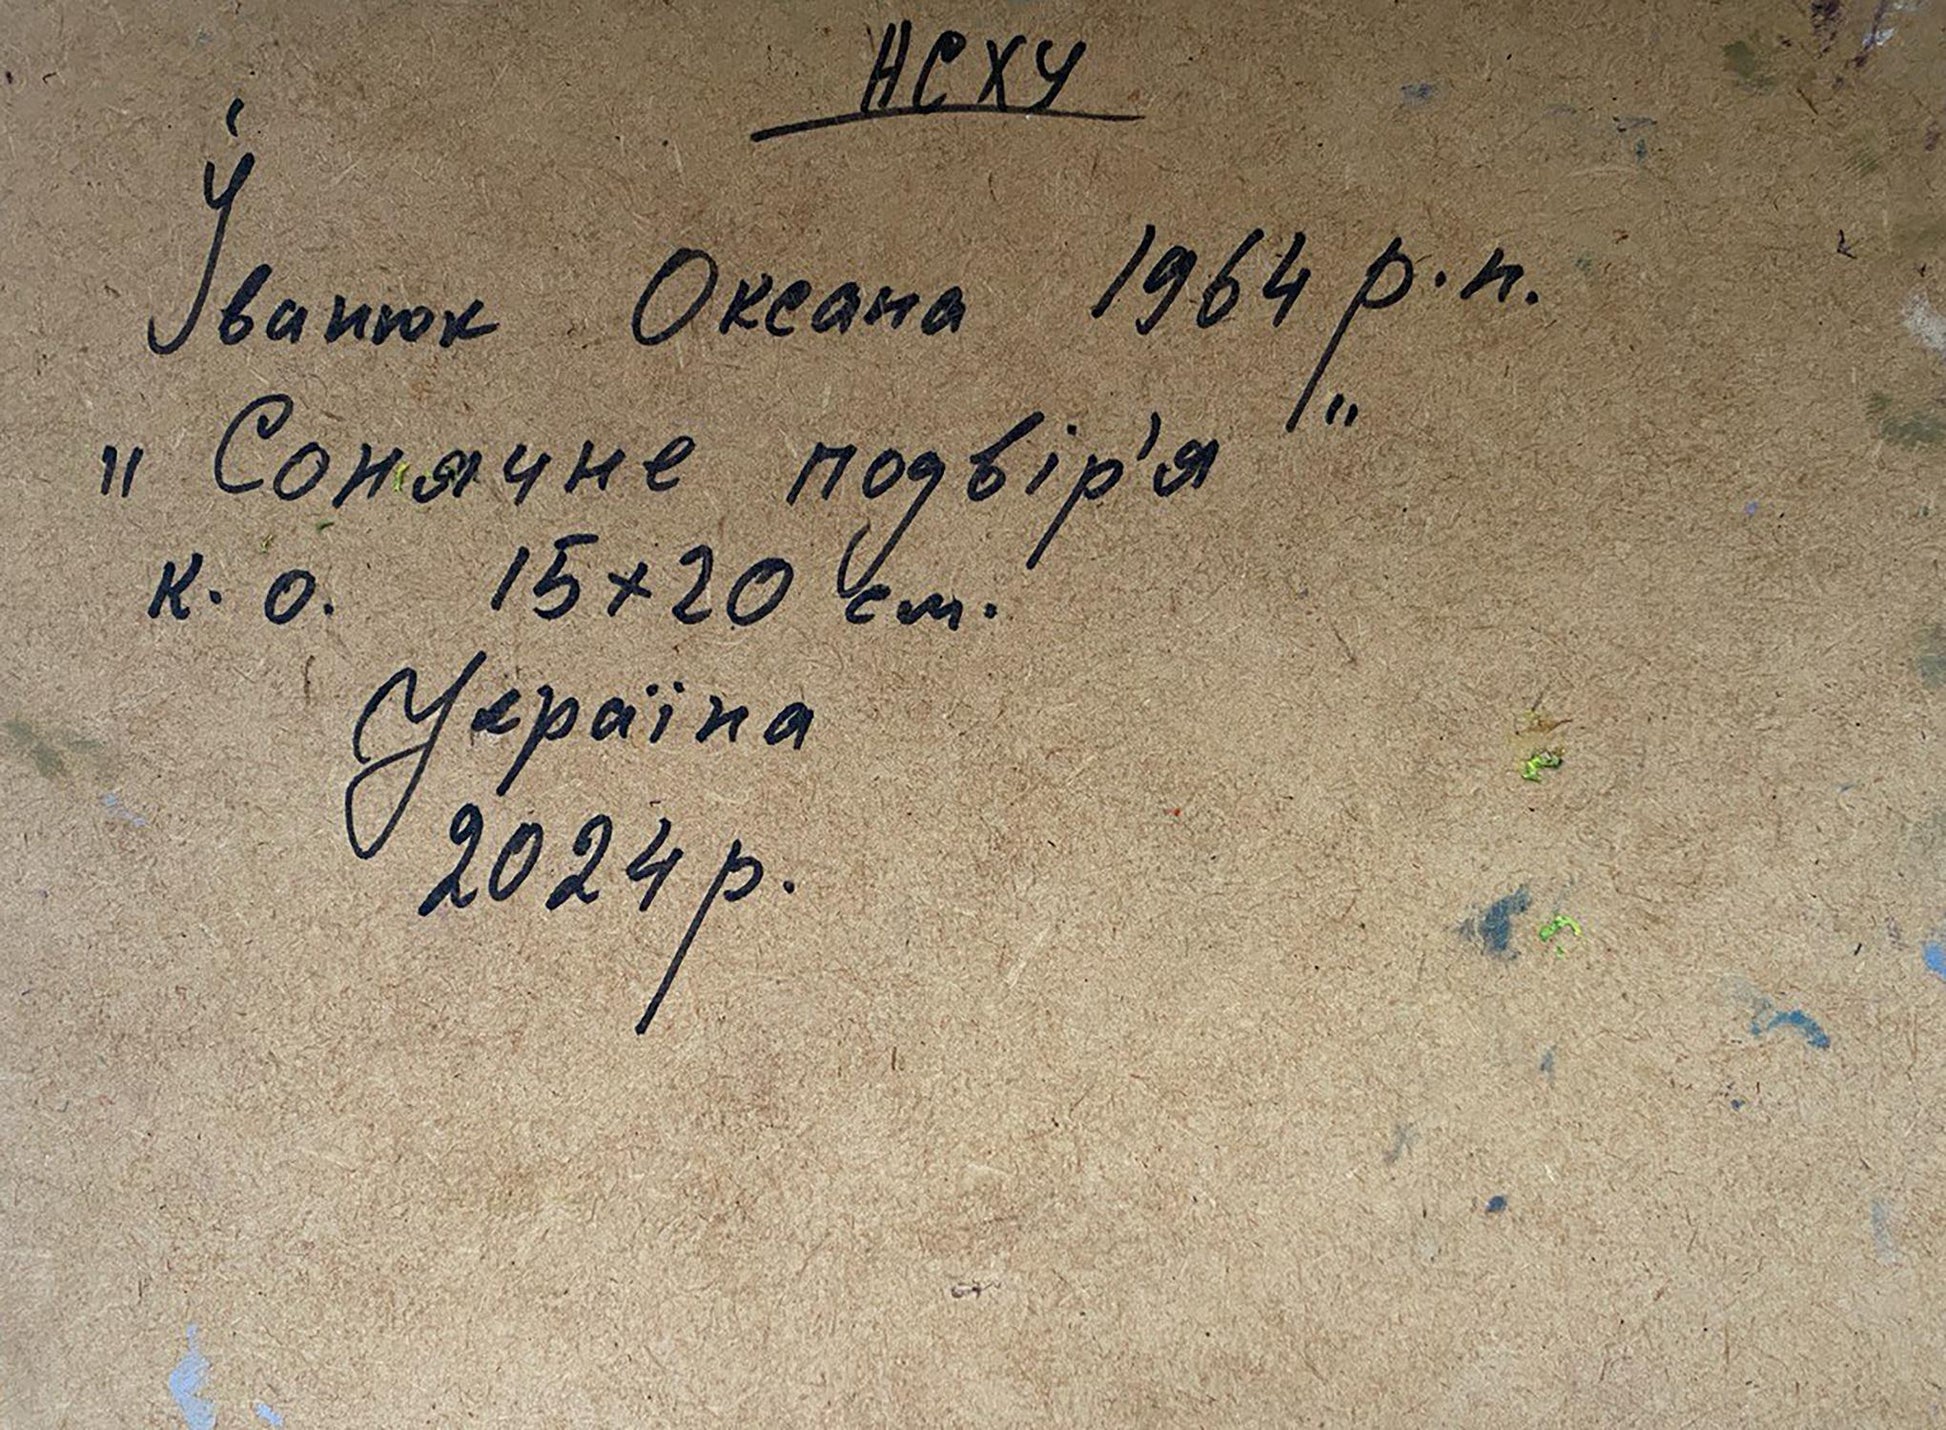 НСХУ
Іванюк Оксана 1964 р.н.
"Сонячне подвір'я"
к. о. 15×20 см.
Україна
2024 р.